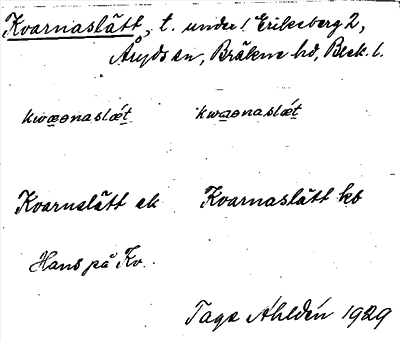 Kvarnaslätt, t. under Eriksberg 2,
Åryds sn, Bräkne hd, Blek. l.
kwæənaslǽt kwaənaslǽt
Kvarnslätt ek Kvarnaslätt kb
Hans på Kv.
Tage Ahldén 1929